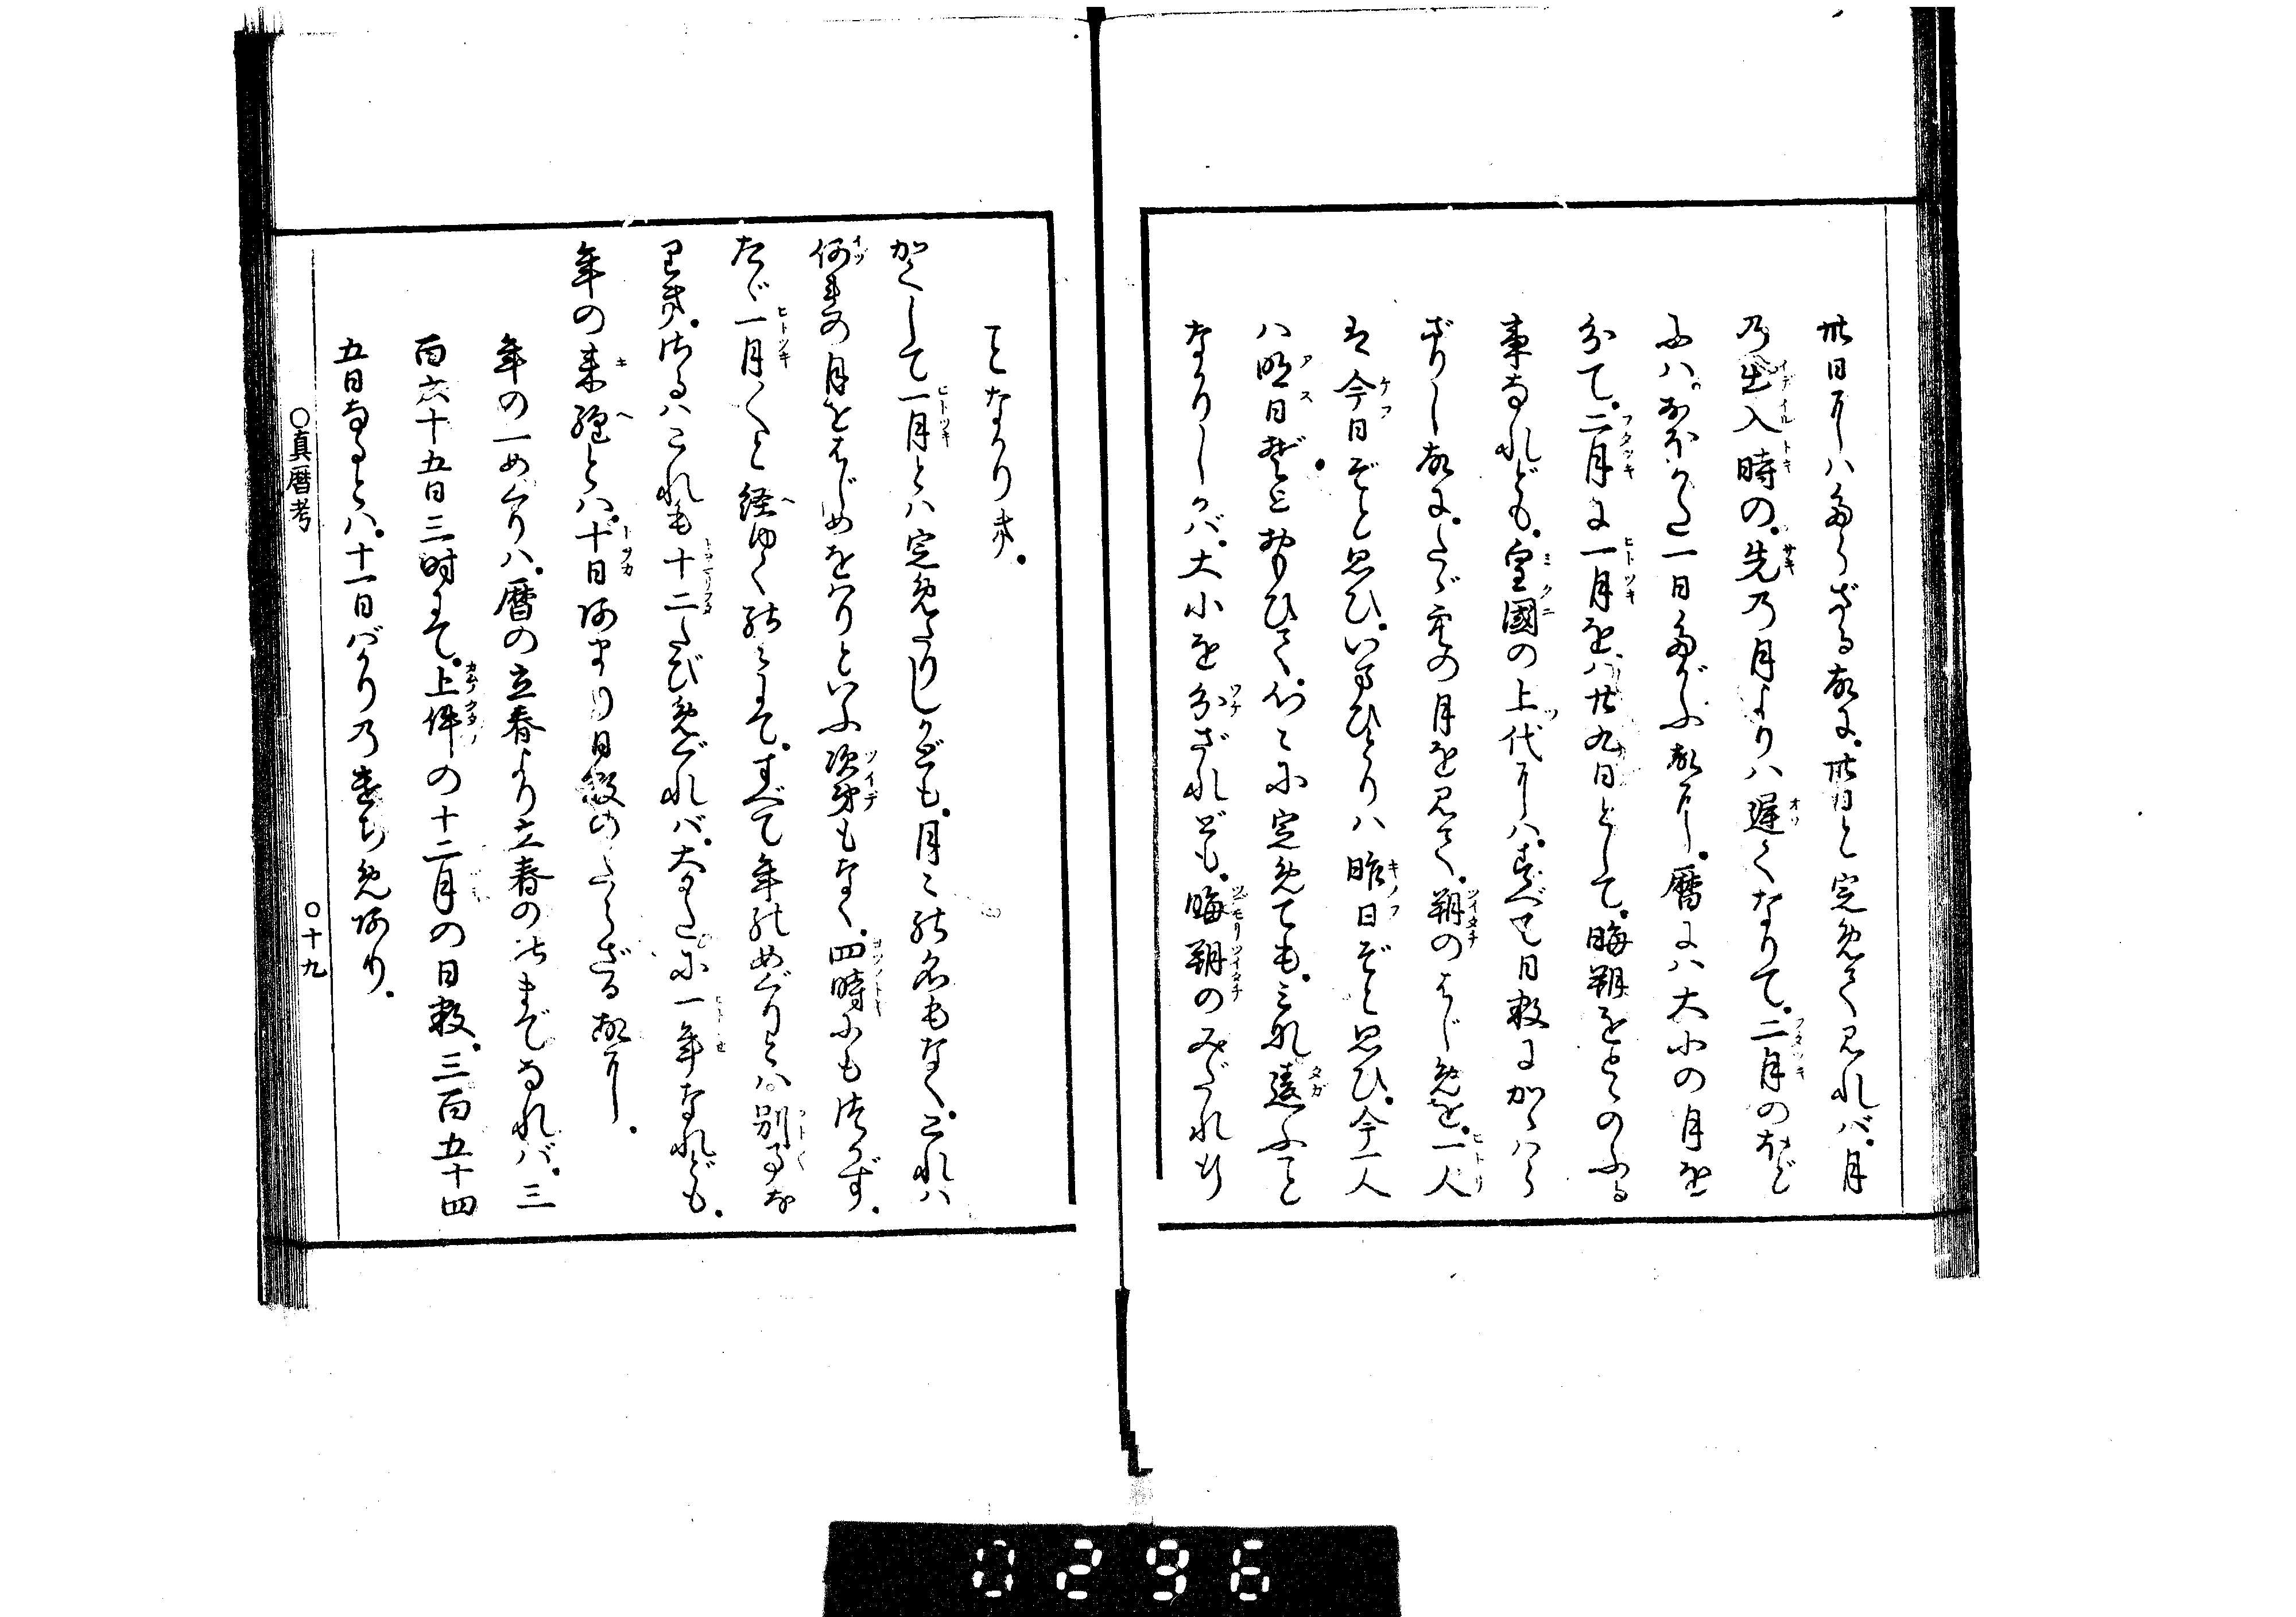 卅日にハたらざる故に。卅日と定めて見れバ。月
乃出入時の。先乃月よりハ遅くなりて。二月のほど
にハ。おほかた一日たがふ故に。暦にハ大小の月を
分て。二月に一月をバ廿九日として。晦朔をとゝのふる
事なれども。皇國の上代にハ。すべて日数にかゝハら
ざりし故に。たゞ空の月を見て。朔のはじめを。一人
は今日ぞと思ひ。いまひとりハ昨日ぞと思ひ。今一人
ハ明日ぞとおもひて。心々に定めても。みな違ふこと
なかりしかバ。大小を分ざれども。晦朔のみだれも
ことなかりき。
かくして一月とハ定めたりしかども。月々の名もなく。これハ
何れの月をはじめをハりといふ次第もなく。四時にもつかず。
たゞ一月〱と経ゆくのみにて。すべて年のめぐりとハ別事な
りき。さるハこれも十二たびめぐれバ。大かたに一年なれども。
年の来経とハ。十日あまり日数のたらざる故に。
年の一めぐりハ。暦の立春より立春の前までなれバ。三
百六十五日三時にて。上件の十二月の日数。三百五十四
五日なるとハ。十一日バかり乃違ちめあり。
〇真暦考
〇十九
0296